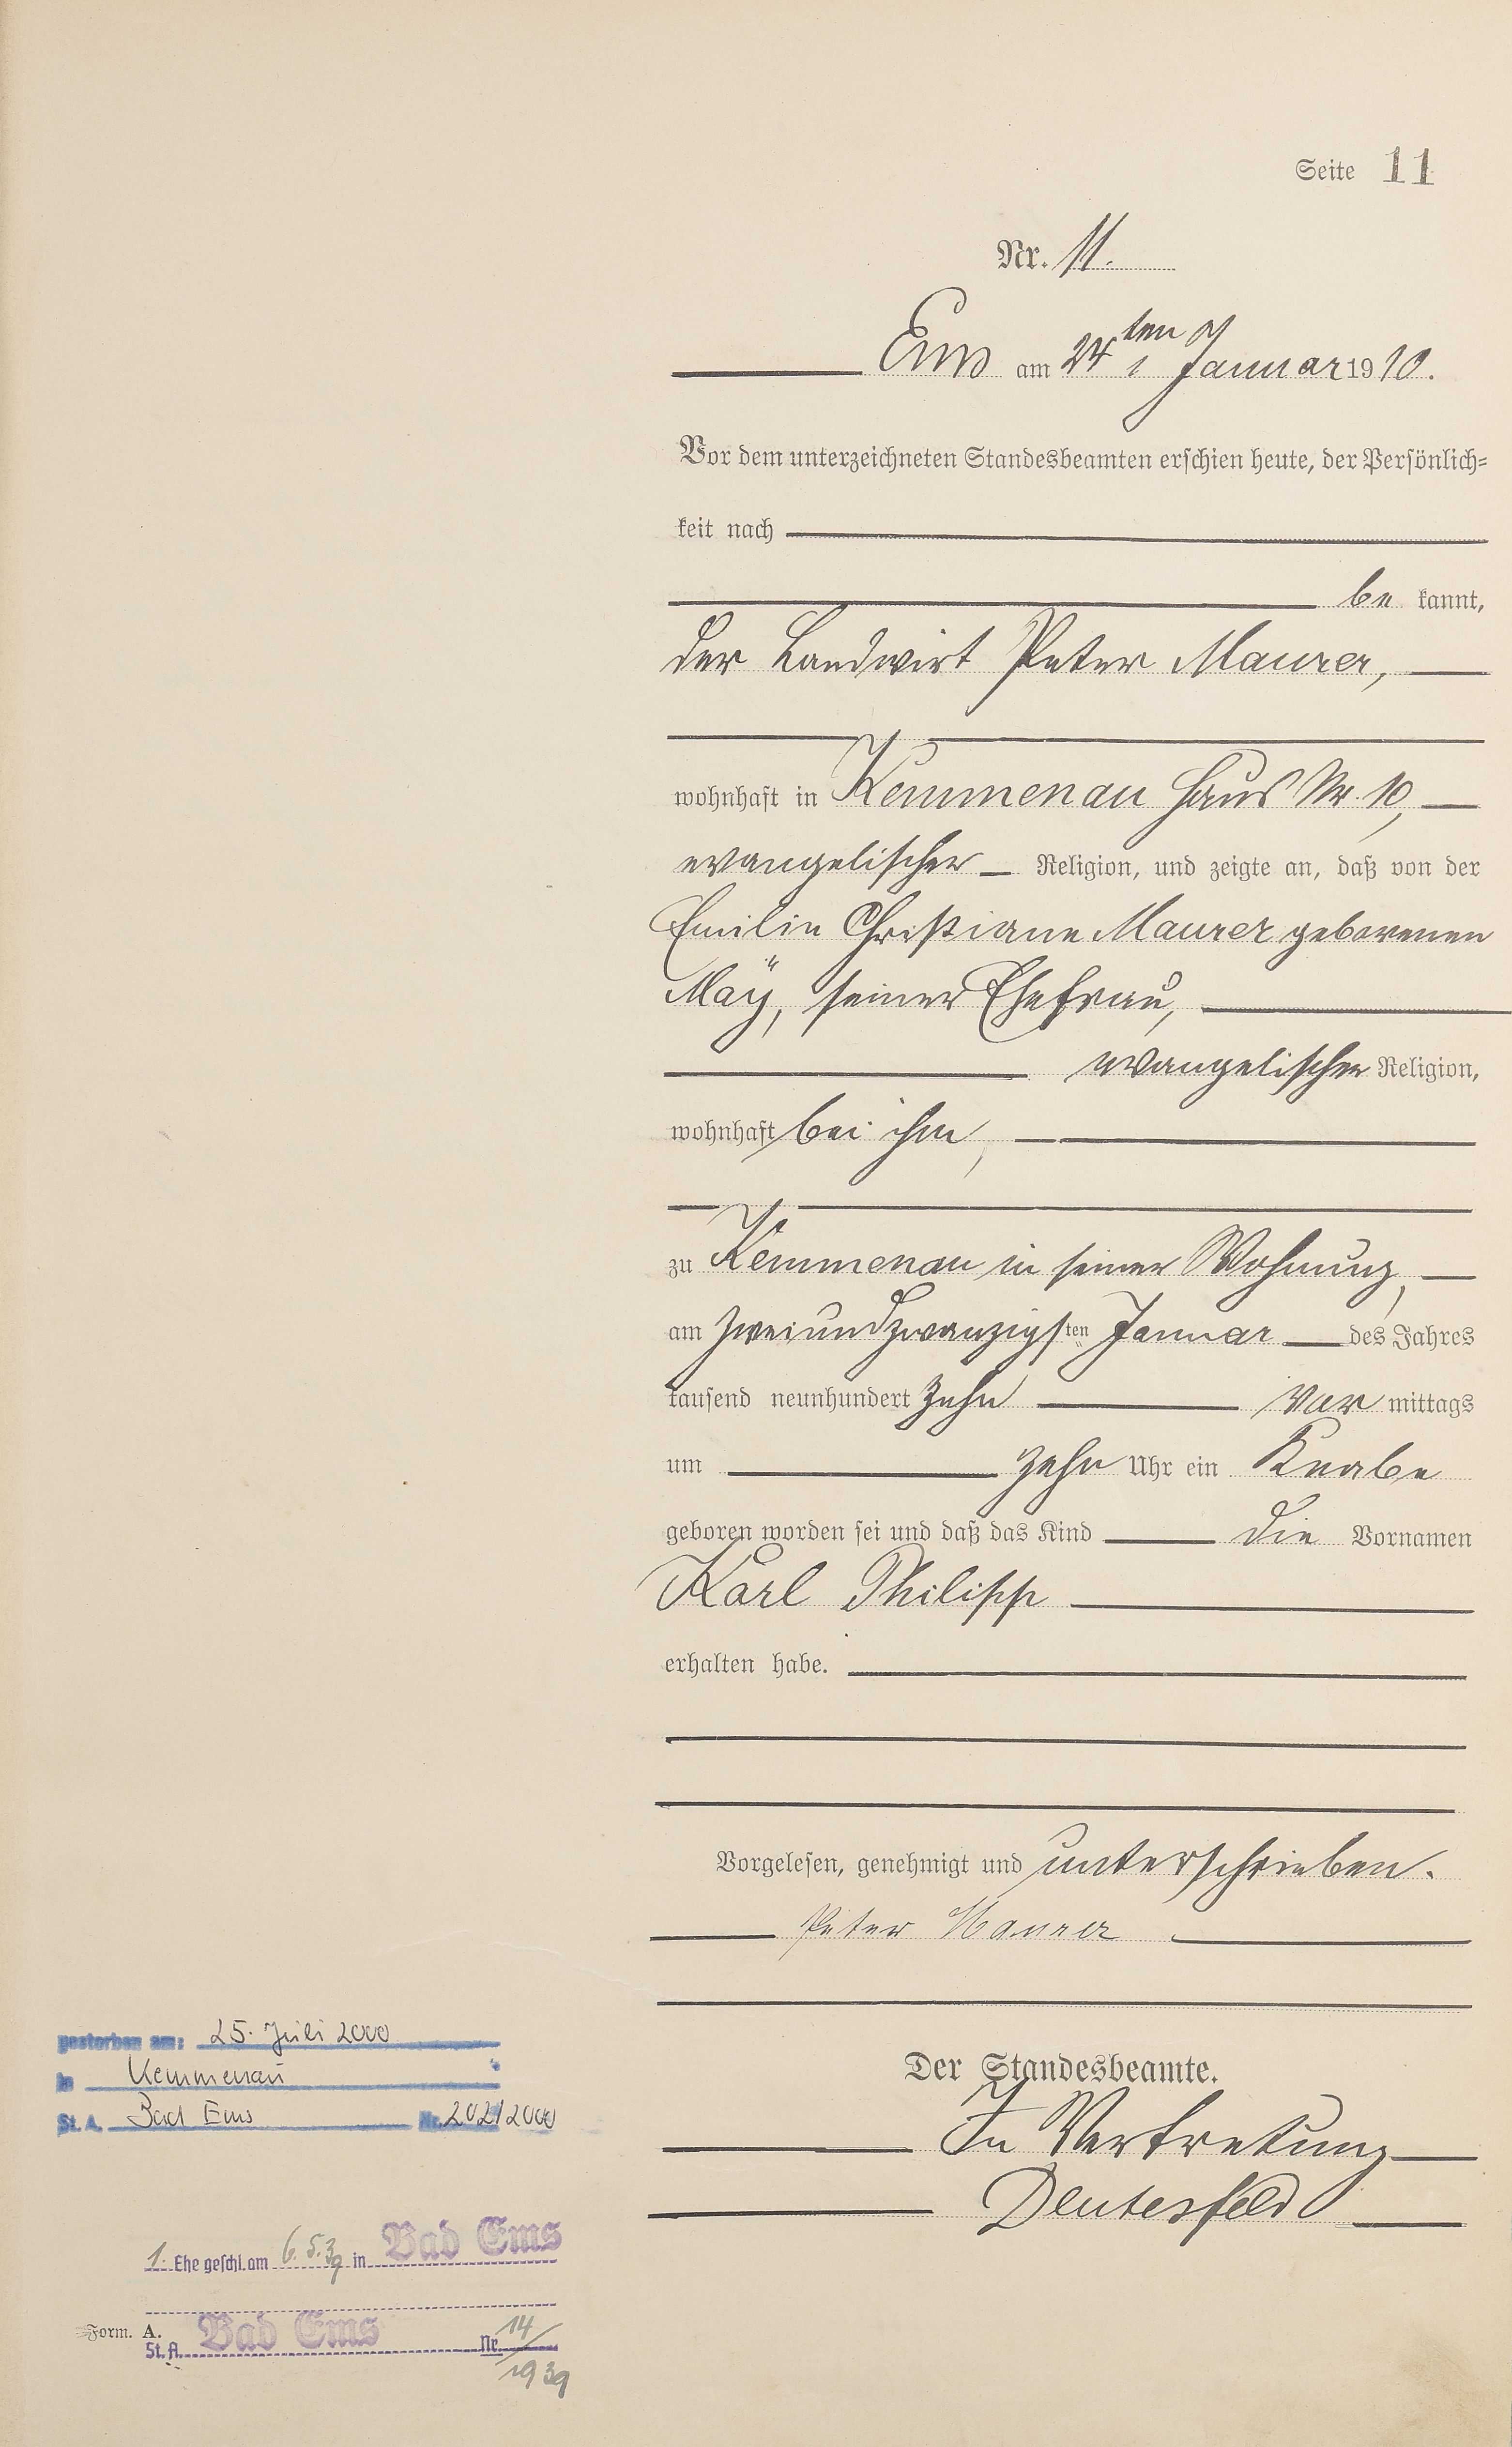 Seite 11
Nr. 11.
Ems am 24ten Januar 1910.
Vor dem unterzeichneten Standesbeamten erschien heute, der Persönlich=
keit nach
be kannt,
der Landwirt Peter Maurer,
wohnhaft in Kemmenau Haus Nr. 10,
evangelischer Religion, und zeigte an, daß von der
Emilie Christiane Maurer geborenen
Maÿ, seiner Ehefrau,
evangelischer Religion,
wohnhaft bei ihm,
zu Kemmenau in seiner Wohnung,
am zweiundzwanzigsten Januar des Jahres
tausend neunhundert zehn vor mittags
um zehn Uhr ein Knabe
geboren worden sei und daß das Kind die Vornamen
Karl Philipp
erhalten habe.
Vorgelesen, genehmigt und unterschrieben.
Peter Maurer
Der Standesbeamte.
In Vertretung
Deutesfeld
gestorben am: 25. Juli 2000
in Kemmenau
St. A. Bad Ems Nr. 202/2000
1. Ehe geschl. am 6.5.39 in Bad Ems
Form. A.
St. A. Bad Ems Nr. 14/1939